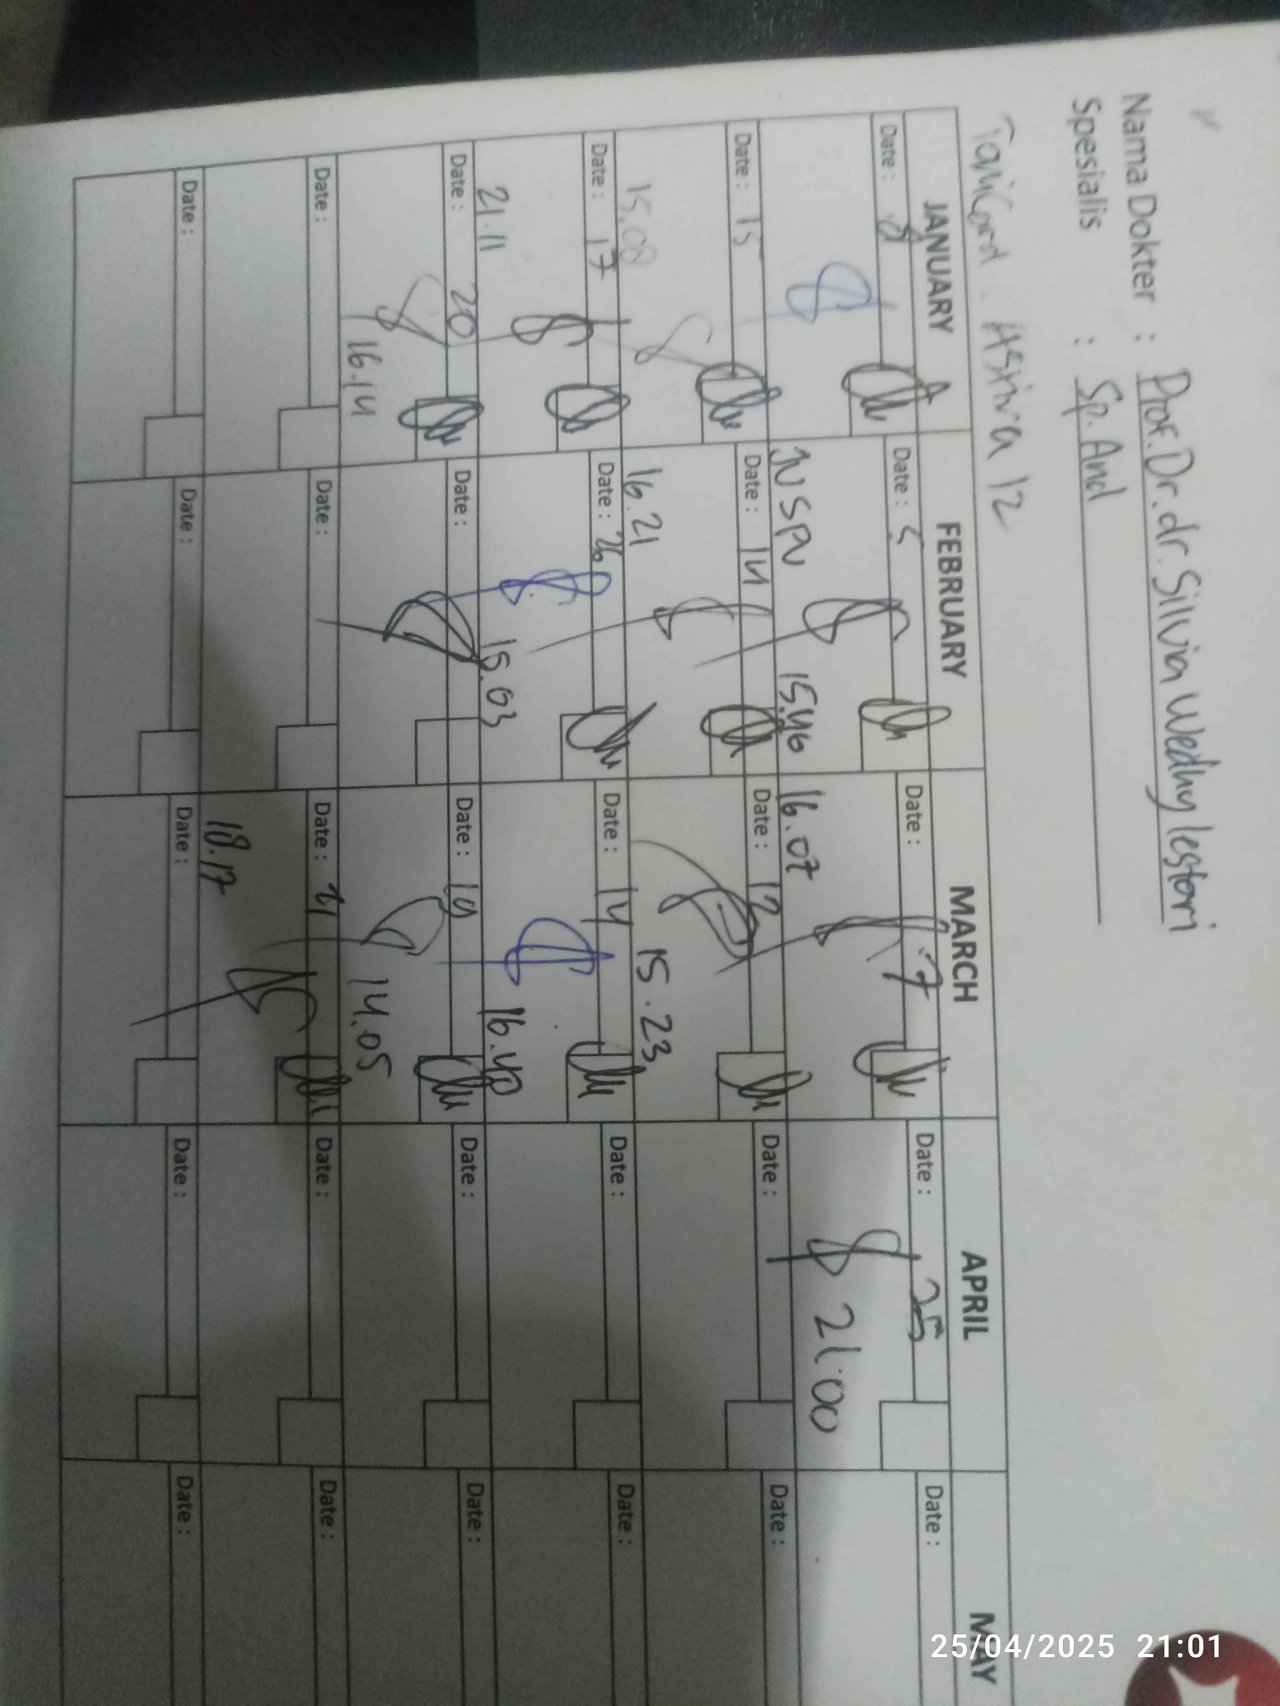 Nama Dokter : Prof. Dr. dr. Silvia Wedhy lestari
Spesialis : Sp. And
12
JANUARY FEBRUARY MARCH APRIL MAY
Date : 8 Date : 5 Date : 7 Date : 25 Date :
21.00
JV SPV 15.46 16.07
Date : 15 Date : 14 Date : 12 Date : Date :
15.08 16.21 15.23
Date : 17 Date : 26 Date : 14 Date : Date :
21.11 15.03 16.40
Date : 20 Date : Date : 19 Date : Date :
16.14 14.05
Date : Date : Date : 21 Date : Date :
18.17
Date : Date : Date : Date : Date :
25/04/2025 21:01